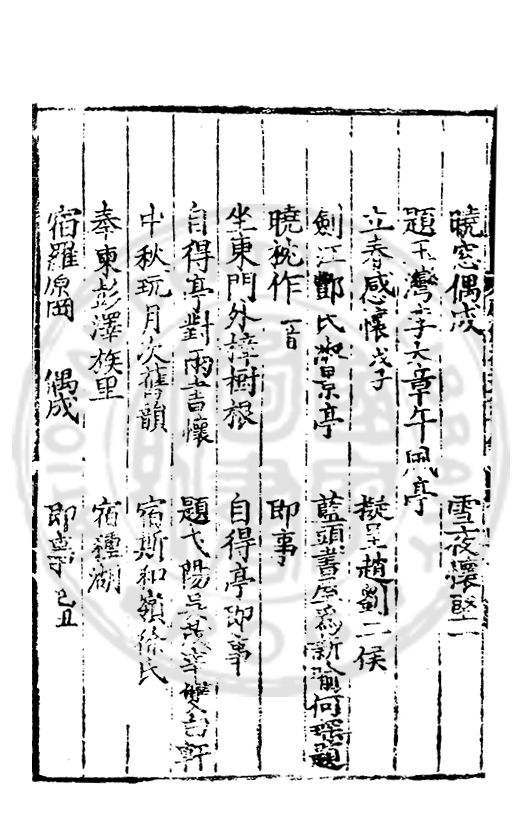 曉窓偶成　雪夜懷堅二
題玉灣李大章午風亭
立春感懷戊子　擬呈趙劉二侯
劍江鄧氏湖景亭　藍頭書屋為新喻何瑤題
曉梳作一首　即事
坐東門外樟樹根　自得亭即事
自得亭對雨書懷　題弋陽　雙白軒
中秋玩月次舊韻　宿斯和嶺徐氏
奉柬彭澤族里　宿種湖
宿羅原岡　偶成　即事己丑